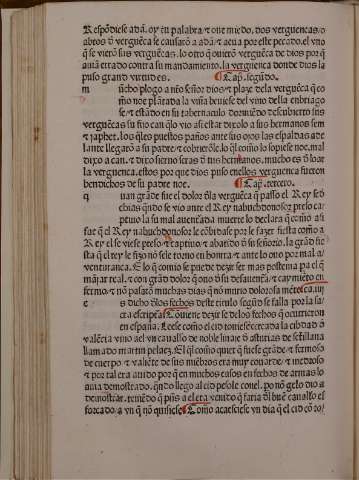 Respõdiese adã. oy tu palabra ⁊ oue miedo. dos verguencas o
abtos d̃ verguẽca le causarõ a adã ⁊ aeua por este pecado. el vno
q̃ se vierõ sus verguẽcas. lo otro q̃ ouierõ verguẽca de dios por q̃
auiã errado contra su mandamiento. la verguẽca donde dios la
puso grand virtud es. ¶ Cap̃. segũdo.
m ucho plogo a nr̃o señor dios ⁊ plaze dela verguẽca q̃ co
mo noe plãtada la viña beuiese del vino della enbriago
se ⁊ estãdo en su tabernaculo dormiẽdo descubierto sus
verguẽcas su fijo can q̃ lo vio asi estar dixolo a sus hermanos sem
⁊ japhet. los q̃les puestos paños ante sus ojos las espaldas ade
lante llegarõ a su padre ⁊ cobrierõle. lo q̃l como lo sopiese noe. mal
dixo a can. ⁊ dixo sieruo seras d̃ tus hermanos. mucho es d̃ loar
la verguenca. estos por que dios puso enellos verguenca fueron
bendichos de su padre noe. ¶ Cap̃. tercero.
q uan grãde fue el dolor d̃la verguẽca q̃ passo el Rey sed
chias quãdo se vio ante el Rey nabuchodonosor preso ca
ptiuo la su mal auenturada muerte lo declara q̃ como asi
fue q̃ el Rey nabuchodonosor le cõbidase por le fazer fiesta como a
Rey el se viese preso ⁊ captiuo ⁊ abatido d̃ su señorio. la grãd fie
sta q̃ el rey le fizo nõ sele torno en honrra ⁊ ante lo ono por mal a
venturanca.
mãjar real. ⁊ con grãd dolor q̃ ono d̃ su desauentura ⁊ cay muerto en
fermo ⁊ nõ pasarõ muchas dias q̃ nõ murio
c s dicho d̃los fechos deste titulo segũd se falla por la sa
cra escriptura ¶ Conuiene dezir se delos fechos q̃ occurrieron
en españa. Leese como el cid touiese cercada la cibdad d̃
valẽcia vino a el vn cauallo de noble linaje d̃ asturias de setillana
llamado martin pelaez. El q̃l como quier q̃ fuese grãde ⁊ fermoso
de cuerpo ⁊ valiẽte de sus miẽbros era muy couarde ⁊ medroso
⁊ por tal era auido por q̃ en muchos casos en fechos de armas lo
auia demostrado. q̃ndo llego al cid pesole conel. po nõ gelo dio a
demostrar. teniẽdo q̃
forcado. a vn q̃ nõ quisiese ¶ Como acaesciese vn dia q̃ el cid cõ to